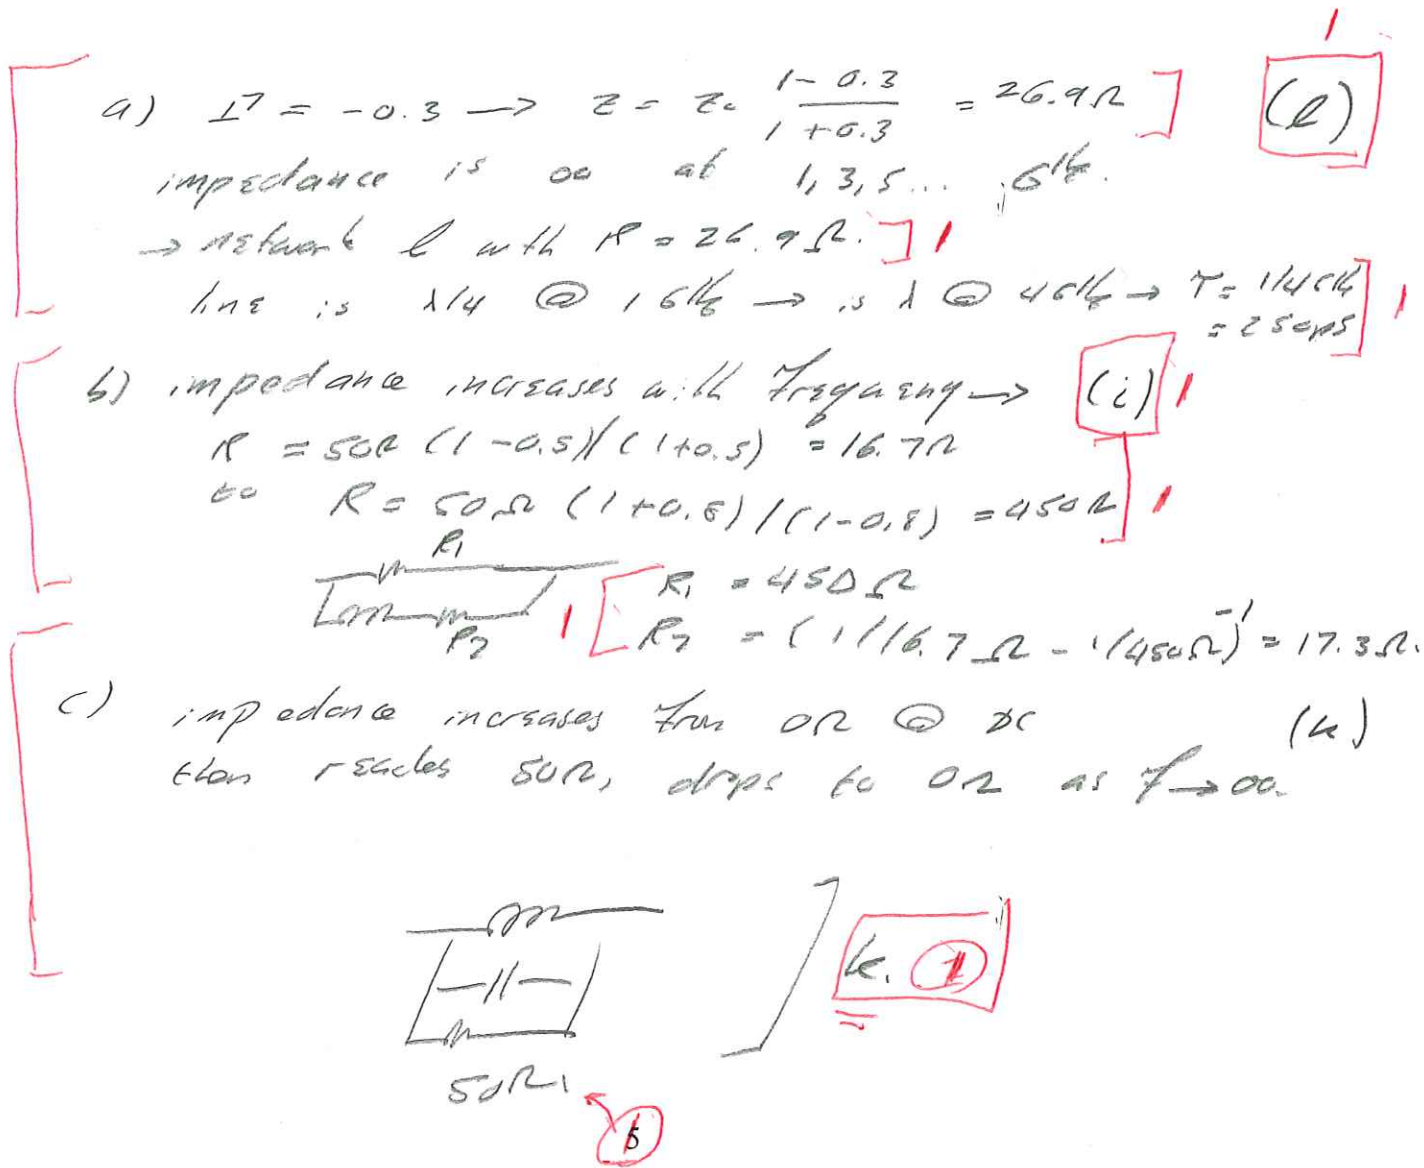 1
a) Γ = -0.3 → Z = Z₀ (1 - 0.3)/(1 + 0.3) = 26.9Ω ] (l)
impedance is ∞ at 1, 3, 5... GHz.
→ network l with R = 26.9Ω. ] 1
line is λ/4 @ 1 GHz → is λ @ 4GHz → T = 1/4GHz
= 250ps ] 1
b) impedance increases with frequency → (i) 1
R = 50Ω (1-0.5)/(1+0.5) = 16.7Ω
to R = 50Ω (1+0.8)/(1-0.8) = 450Ω ] 1
R₁
R₁ = 450Ω
R₂ 1 [ R₂ = (1/16.7Ω - 1/450Ω)⁻¹ = 17.3Ω.
c) impedance increases from 0Ω @ DC (k)
then reaches 50Ω, drops to 0Ω as f → ∞.
k. 1
50Ω
5